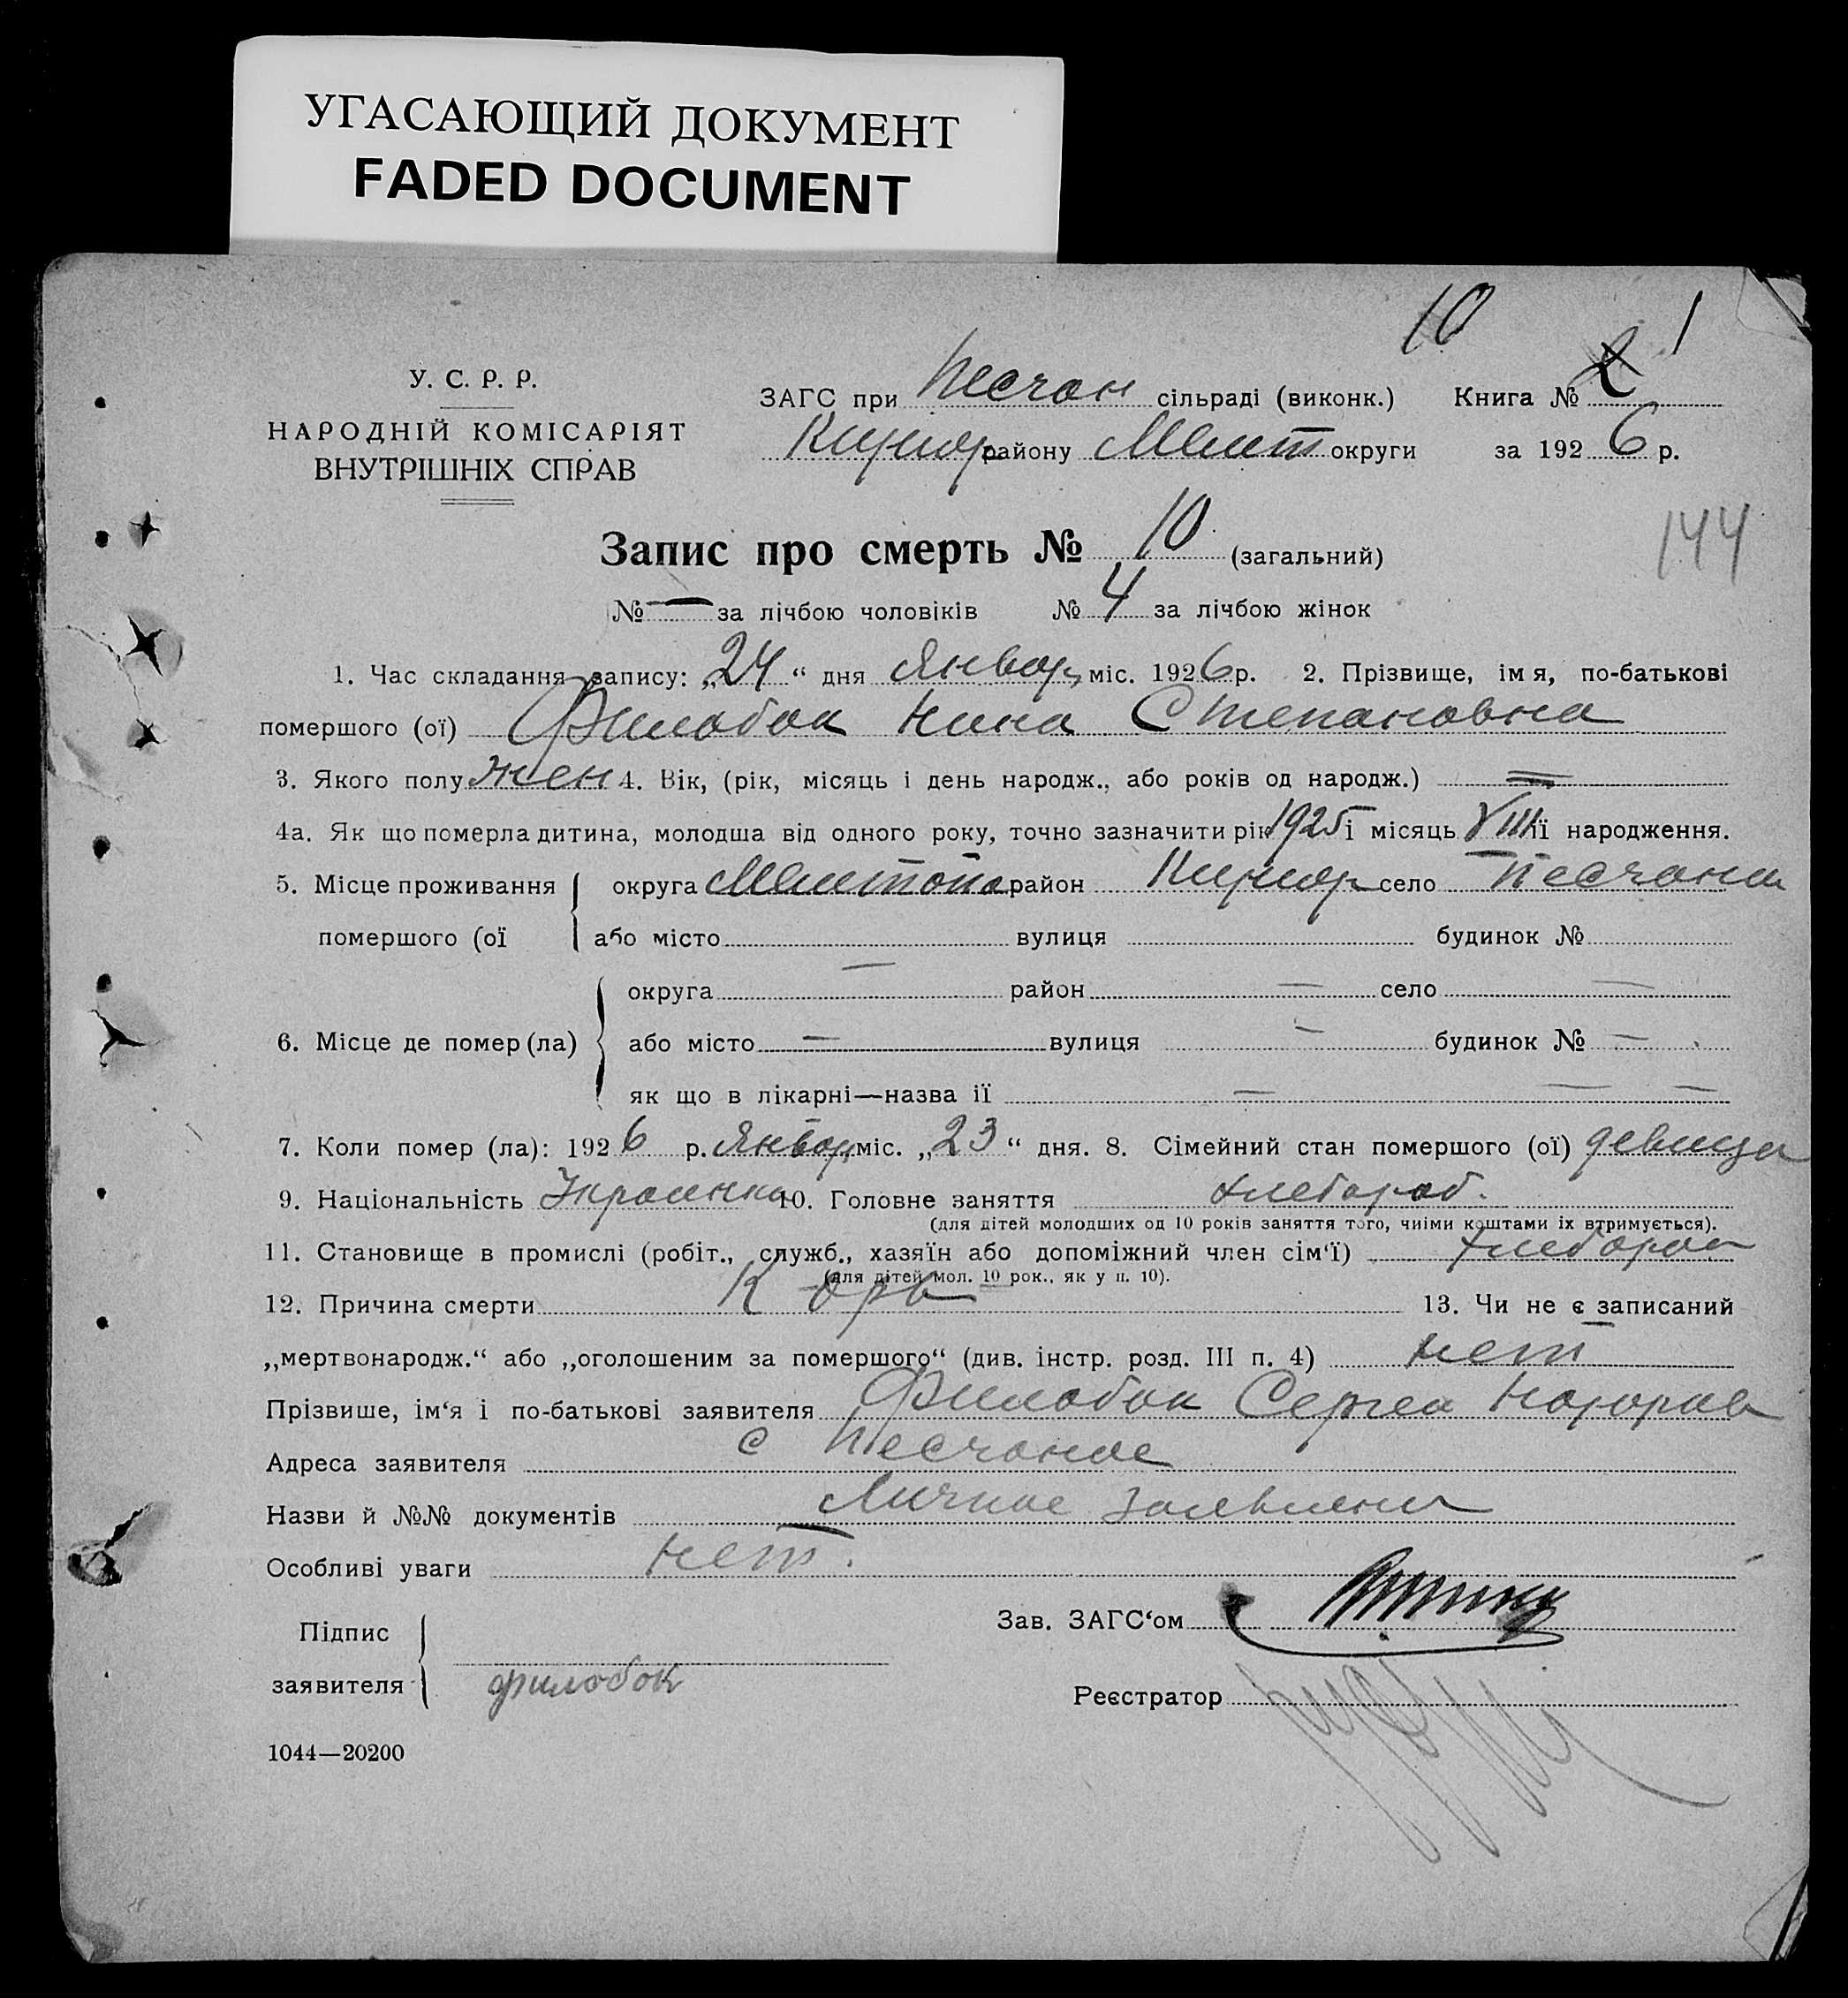 УГАСАЮЩИЙ ДОКУМЕНТ
FADED DOCUMENT
10 1
У. С. Р. Р.
НАРОДНІЙ КОМІСАРІЯТ
ВНУТРІШНІХ СПРАВ
ЗАГС при Песчан сільраді (виконк.) Книга № 2
району Мелит округи за 1926 р.
Запис про смерть № 10 (загальний)
144
№ — за лічбою чоловіків № 4 за лічбою жінок
1. Час складання запису: „24“ дня Январ міс. 1926 р. 2. Прізвище, ім я, по-батькові
помершого (ої) Филобок Нина Степановна
3. Якого полу жен 4. Вік, (рік, місяць і день народж., або років од народж.) =
4а. Як що померла дитина, молодша від одного року, точно зазначити рік 1925 і місяць VIII її народження.
5. Місце проживання помершого (ої
округа Мелитопо район село Песчани
або місто вулиця будинок №
6. Місце де помер (ла)
округа — район — село —
або місто — вулиця — будинок № —
як що в лікарні—назва ії — — —
7. Коли помер (ла): 1926 р. Январ міс. „23“ дня. 8. Сімейний стан помершого (ої) девица
9. Національність Украинка 10. Головне заняття хлебороб.
(для дітей молодших од 10 років заняття того, чиіми коштами їх втримується).
11. Становище в промислі (робіт., служб., хазяїн або допоміжний член сім‘ї) хлебороб
(для дітей мол. 10 рок., як у п. 10).
12. Причина смерти Корь 13. Чи не є записаний
„мертвонародж.“ або „оголошеним за помершого“ (див. інстр. розд. III п. 4) нет
Прізвише, ім‘я і по-батькові заявителя Филобок Сергей
Адреса заявителя с Песчаное
Назви й №№ документів Личное заявлени
Особливі уваги нет.
Підпис
заявителя филобок
Зав. ЗАГС‘ом
Реєстратор
1044—20200